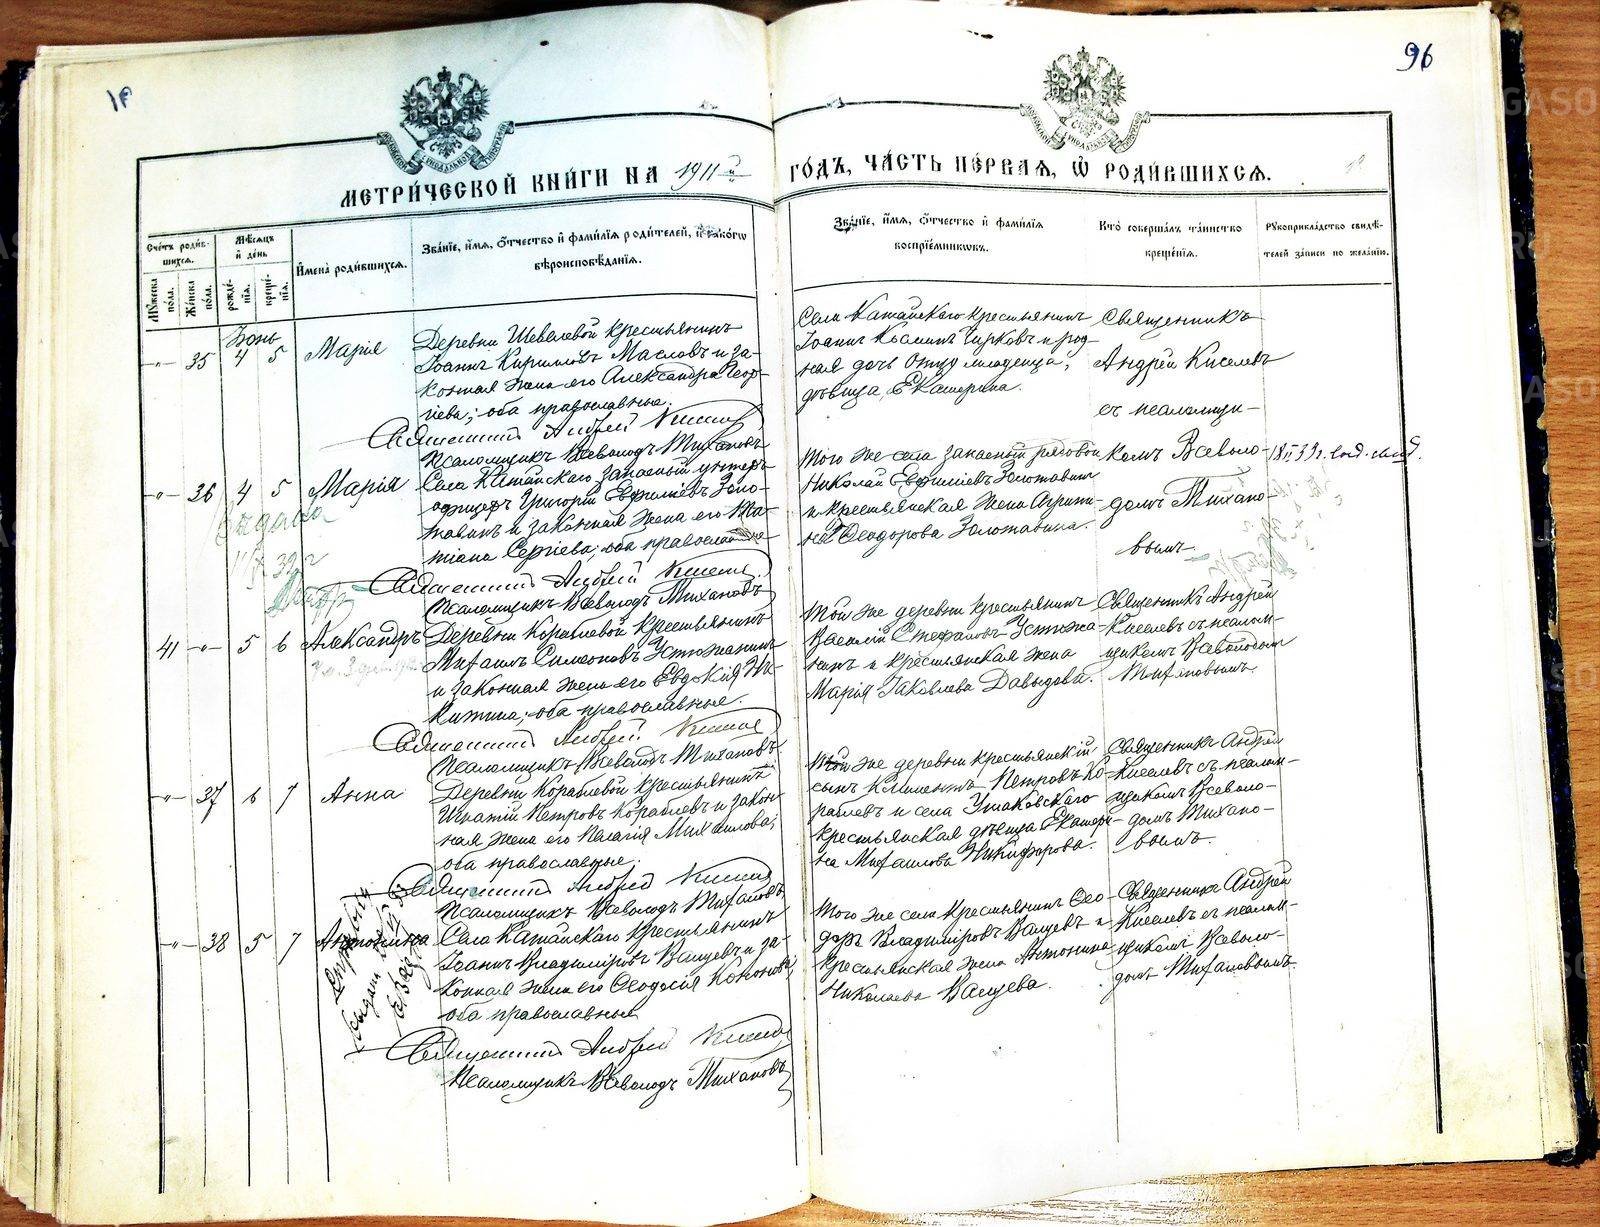 96
МЕТРИ́ЧЕСКОЙ КНИ́ГИ НА 1911й ГО́ДЪ, ЧА́СТЬ ПЕ́РВАЯ, Ѡ҆ РОДИ́ВШИХСЯ.
Сче́тъ роди́в-
шихся.
Мꙋ́жеска
по́ла.
Же́нска
по́ла.
Мѣ́сяцъ
и҆ де́нь
рожде́-
нїя.
креще́-
нїя.
И҆мена̀ роди́вшихся.
Зва́нїе, и҆́мя, ѻ҆́тчество и҆ фами́лїя роди́телей, и҆ како́гѡ
вѣроисповѣ́данїя.
Зва́нїе, и҆́мя, ѻ҆́тчество и҆ фами́лїя
воспрїе́мникѡвъ.
Кто̀ соверша́лъ та́инство
креще́нїя.
Рꙋкоприкла́дство свидѣ́-
телей за́писи по жела́нїю.
Іюнь
-„- 35 4 5 Марія
Деревни Шевелевой крестьянинъ
Іоаннъ Кирилловъ Масловъ и за-
конная жена его Александра Геор-
гіева; оба православные.
Священникъ Андрей Киселевъ
Псаломщикъ Всеволодъ Тихановъ
Села Катайскаго крестьянинъ
Іоаннъ Космин Чирковъ и род-
ная дочь отцу младенца,
дѣвица Екатерина.
Священникъ
Андрей Киселевъ
съ псаломщи-
комъ Всеволо-
домъ Тихано-
вымъ
-„- 36 4 5 Марія
Выдана
Села Катайскаго запасный унтеръ
офицеръ Григорій Евфиміевъ Золо-
тавинъ и законная жена его Та-
тіана Сергіева; оба православные
Священникъ Андрей Киселевъ
Псаломщикъ Всеволодъ Тихановъ
Того же села запасный рядовой
Николай Евфиміевъ Золотавин
и крестьянская жена Агрипи-
на Ѳеодорова Золотавина.
41 -„- 5 6 Александръ
Деревни Кораблевой крестьянинъ
Михаилъ Симеоновъ Устюжанинъ
и законная жена его Евдокія Ни-
китина; оба православные.
Священникъ Андрей Киселевъ
Псаломщикъ Всеволодъ Тихановъ
Той же деревни крестьянинъ
Василій Стефановъ Устюжа-
нинъ и крестьянская жена
Марія Іаковлева Давыдова.
Священникъ Андрей
Киселевъ съ псалом-
щикомъ Всеволодомъ
Тихановымъ.
-„- 37 6 7 Анна
Деревни Кораблевой крестьянинъ
Игнатій Петровъ Кораблевъ и закон-
ная жена его Пелагія Михаилова;
оба православные.
Священникъ Андрей Киселевъ
Псаломщикъ Всеволодъ Тихановъ
Той же деревни крестьянскій
сынъ Климентъ Петровъ Ко-
раблевъ и села Ушаковскаго
крестьянская дѣвица Екатери-
на Михаилова Никифорова.
Священникъ Андрей
Киселевъ съ псалом-
щикомъ Всеволо-
домъ Тихано-
вымъ.
-„- 38 5 7 Антонина
Села Катайскаго крестьянинъ
Іоаннъ Владиміровъ Ванцевъ и за-
конная жена его Ѳеодосія Кононова,
оба православные
Священникъ Андрей Киселевъ
Псаломщикъ Всеволодъ Тихановъ
Того же села крестьянинъ Ѳео-
доръ Владиміровъ Ванцевъ и
крестьянская жена Антонина
Николаева Ванцева.
Священникъ Андрей
Киселевъ съ псалом-
щикомъ Всеволо-
домъ Тихановымъ.